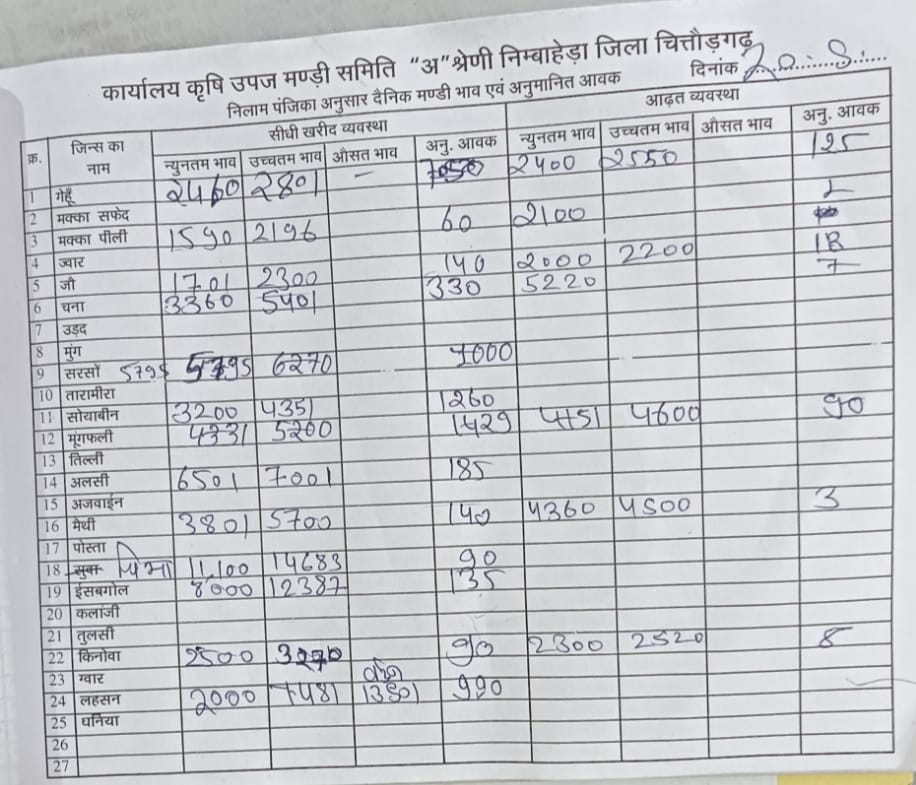 कार्यालय कृषि उपज मण्डी समिति "अ"श्रेणी निम्बाहेड़ा जिला चित्तौड़गढ़
निलाम पंजिका अनुसार दैनिक मण्डी भाव एवं अनुमानित आवक दिनांक
सीधी खरीद व्यवस्था आढ़त व्यवस्था
क्र. जिन्स का नाम न्युनतम भाव उच्चतम भाव औसत भाव अनु. आवक न्युनतम भाव उच्चतम भाव औसत भाव अनु. आवक
1 गेहूँ 2460 2801 – 2400 2550 125
2 मक्का सफेद
3 मक्का पीली 1590 2196 60 2100
4 ज्वार
5 जौ 1701 2300 140 2000 2200 18
6 चना 3360 5401 330 5220 7
7 उड़द
8 मुंग
9 सरसों 5795 5795 6270 7000
10 तारामीरा
11 सोयाबीन 3200 4351 1260
12 मूंगफली 4331 5200 1429 4151 4600 90
13 तिल्ली
14 अलसी 6501 7001 185
15 अजवाईन
16 मेथी 3801 5700 140 4360 4500 3
17 पोस्ता
18 11,100 14683 90
19 ईसबगोल 8000 12387 135
20 कलांजी
21 तुलसी
22 किनोवा 2500 90 2300 2520 8
23 ग्वार
24 लहसन 2000 7481 990
25 धनिया
26
27